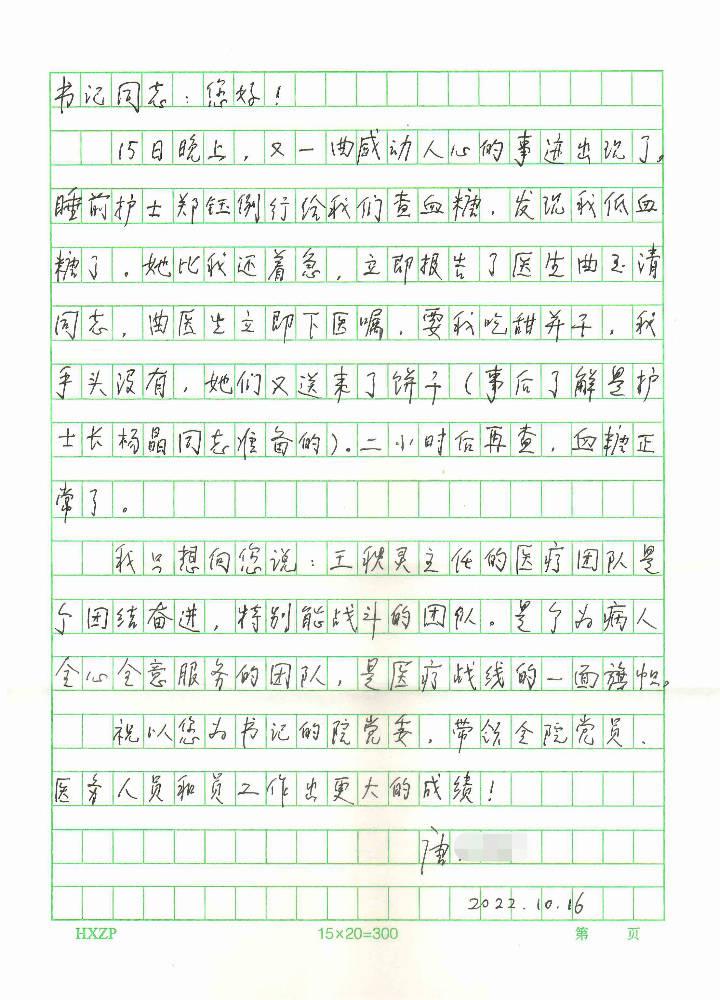 书记同志：您好！
15日晚上，又一曲感动人心的事迹出现了。
睡前护士郑钰例行给我们查血糖，发现我低血
糖了。她比我还着急，立即报告了医生曲玉清
同志，曲医生立即下医嘱，要我吃甜并干，我
手头没有，她们又送来了饼干（事后了解是护
士长杨晶同志准备的）。二小时后再查，血糖正
常了。
我只想向您说：王秩灵主任的医疗团队是
个团结奋进，特别能战斗的团队。是个为病人
全心全意服务的团队，是医疗战线的一面旗帜。
祝以您为书记的院党委，带领全院党员、
医务人员和员工作出更大的成绩！
唐
2022.10.16
HXZP 15×20=300 第 页